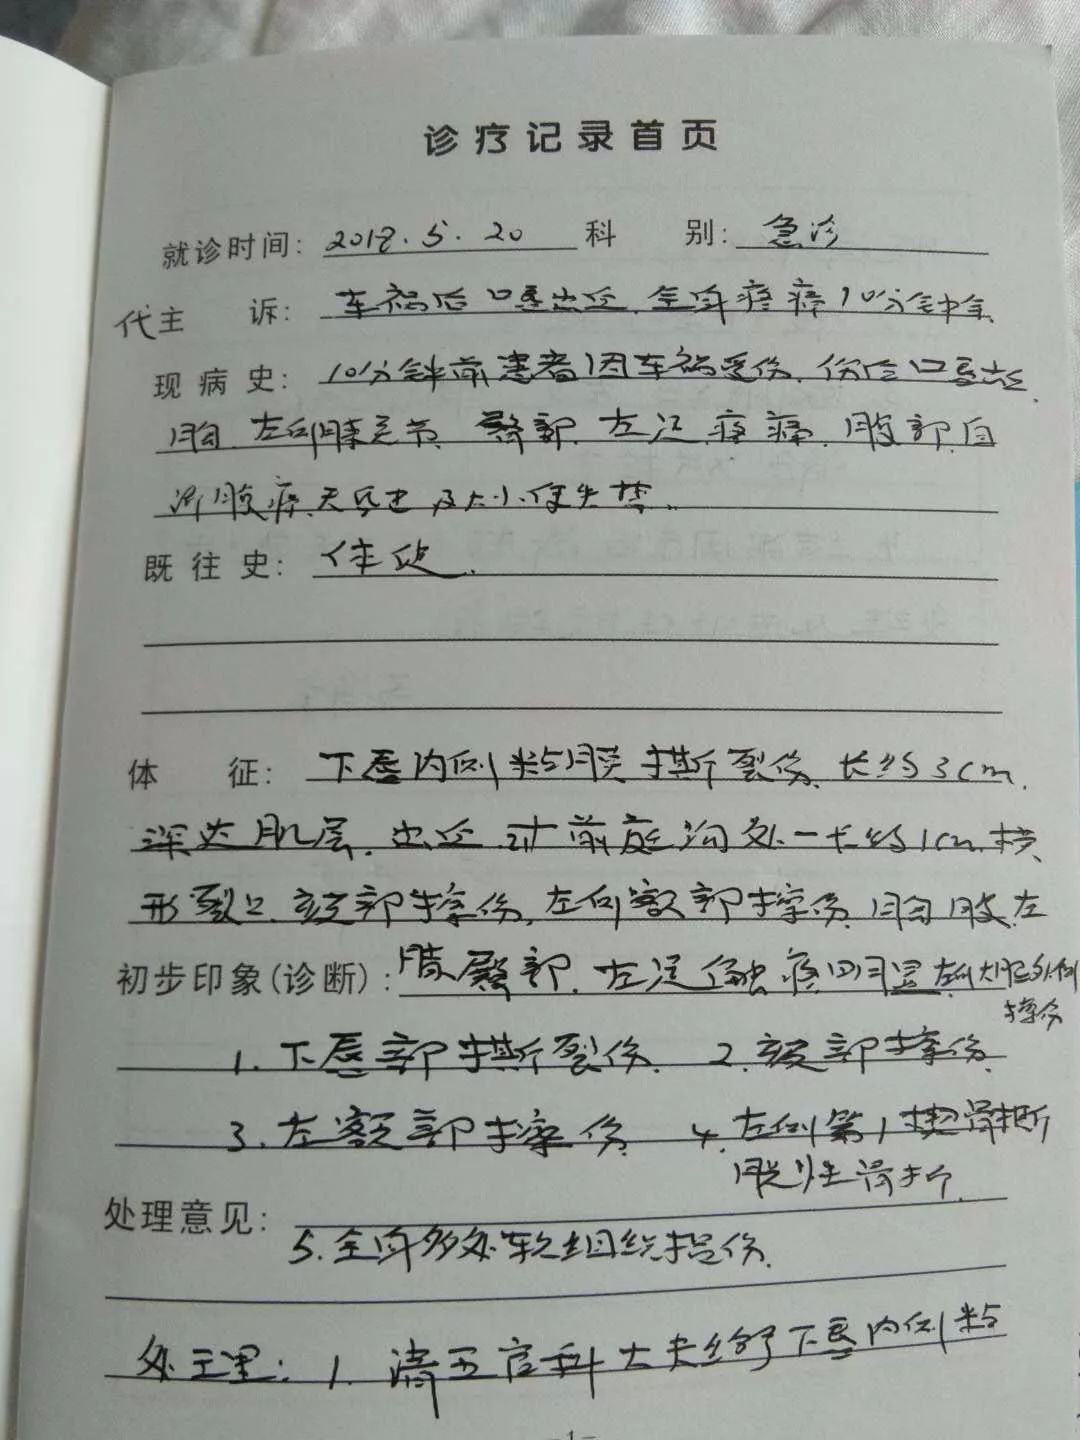 诊疗记录首页
就诊时间: 2019.5.20 科 别: 急诊
代主 诉: 车祸后口唇出血、全身疼痛10分钟余
现病史: 10分钟前患者因车祸受伤、伤后口唇出血、
胸、左侧膝关节、臀部、左足疼痛、腹部自
述腹痛、无昏迷及大小便失禁。
既往史: 体健.
体 征: 下唇内侧粘膜撕裂伤、长约3cm、
深达肌层、出血、对前庭沟处一长约1cm横
形裂口、颏部擦伤、左侧额部擦伤、胸腹左
初步印象(诊断): 膝臀部、左足触疼明显 左侧大腿外侧
擦伤
1. 下唇部撕裂伤. 2. 颏部擦伤.
3. 左额部擦伤. 4. 左侧第1楔骨撕
脱性骨折.
处理意见:
5. 全身多处软组织损伤.
处理: 1. 请五官科大夫给予下唇内侧粘
-1-